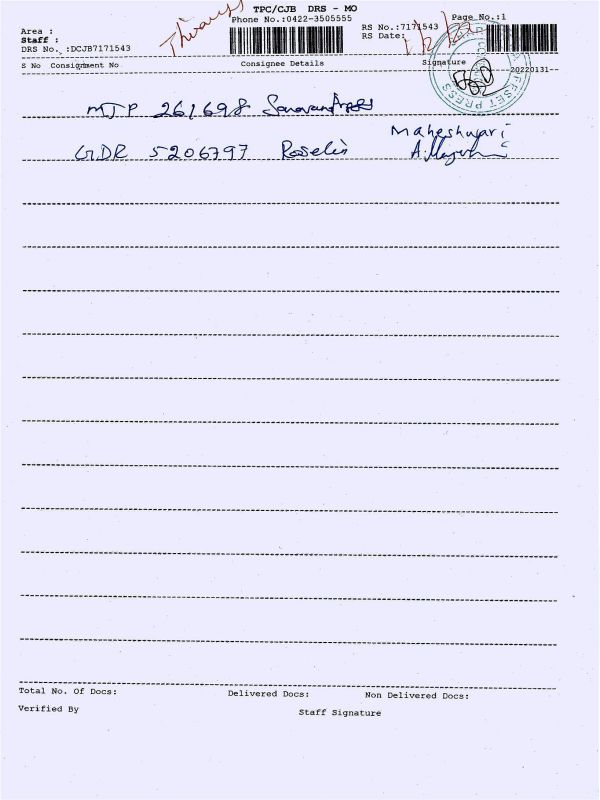 TPC/CJB DRS - MO
Phone No.:0422-3505555
Page No.:1
Area :
Staff :
DRS No. :DCJB7171543
RS No.:7171543
RS Date:
1/2/22
S No Consignment No Consignee Details Signature
20220131
MTP 261698
GDR 5206797 Roselin Maheshwari
Total No. Of Docs: Delivered Docs: Non Delivered Docs:
Verified By Staff Signature